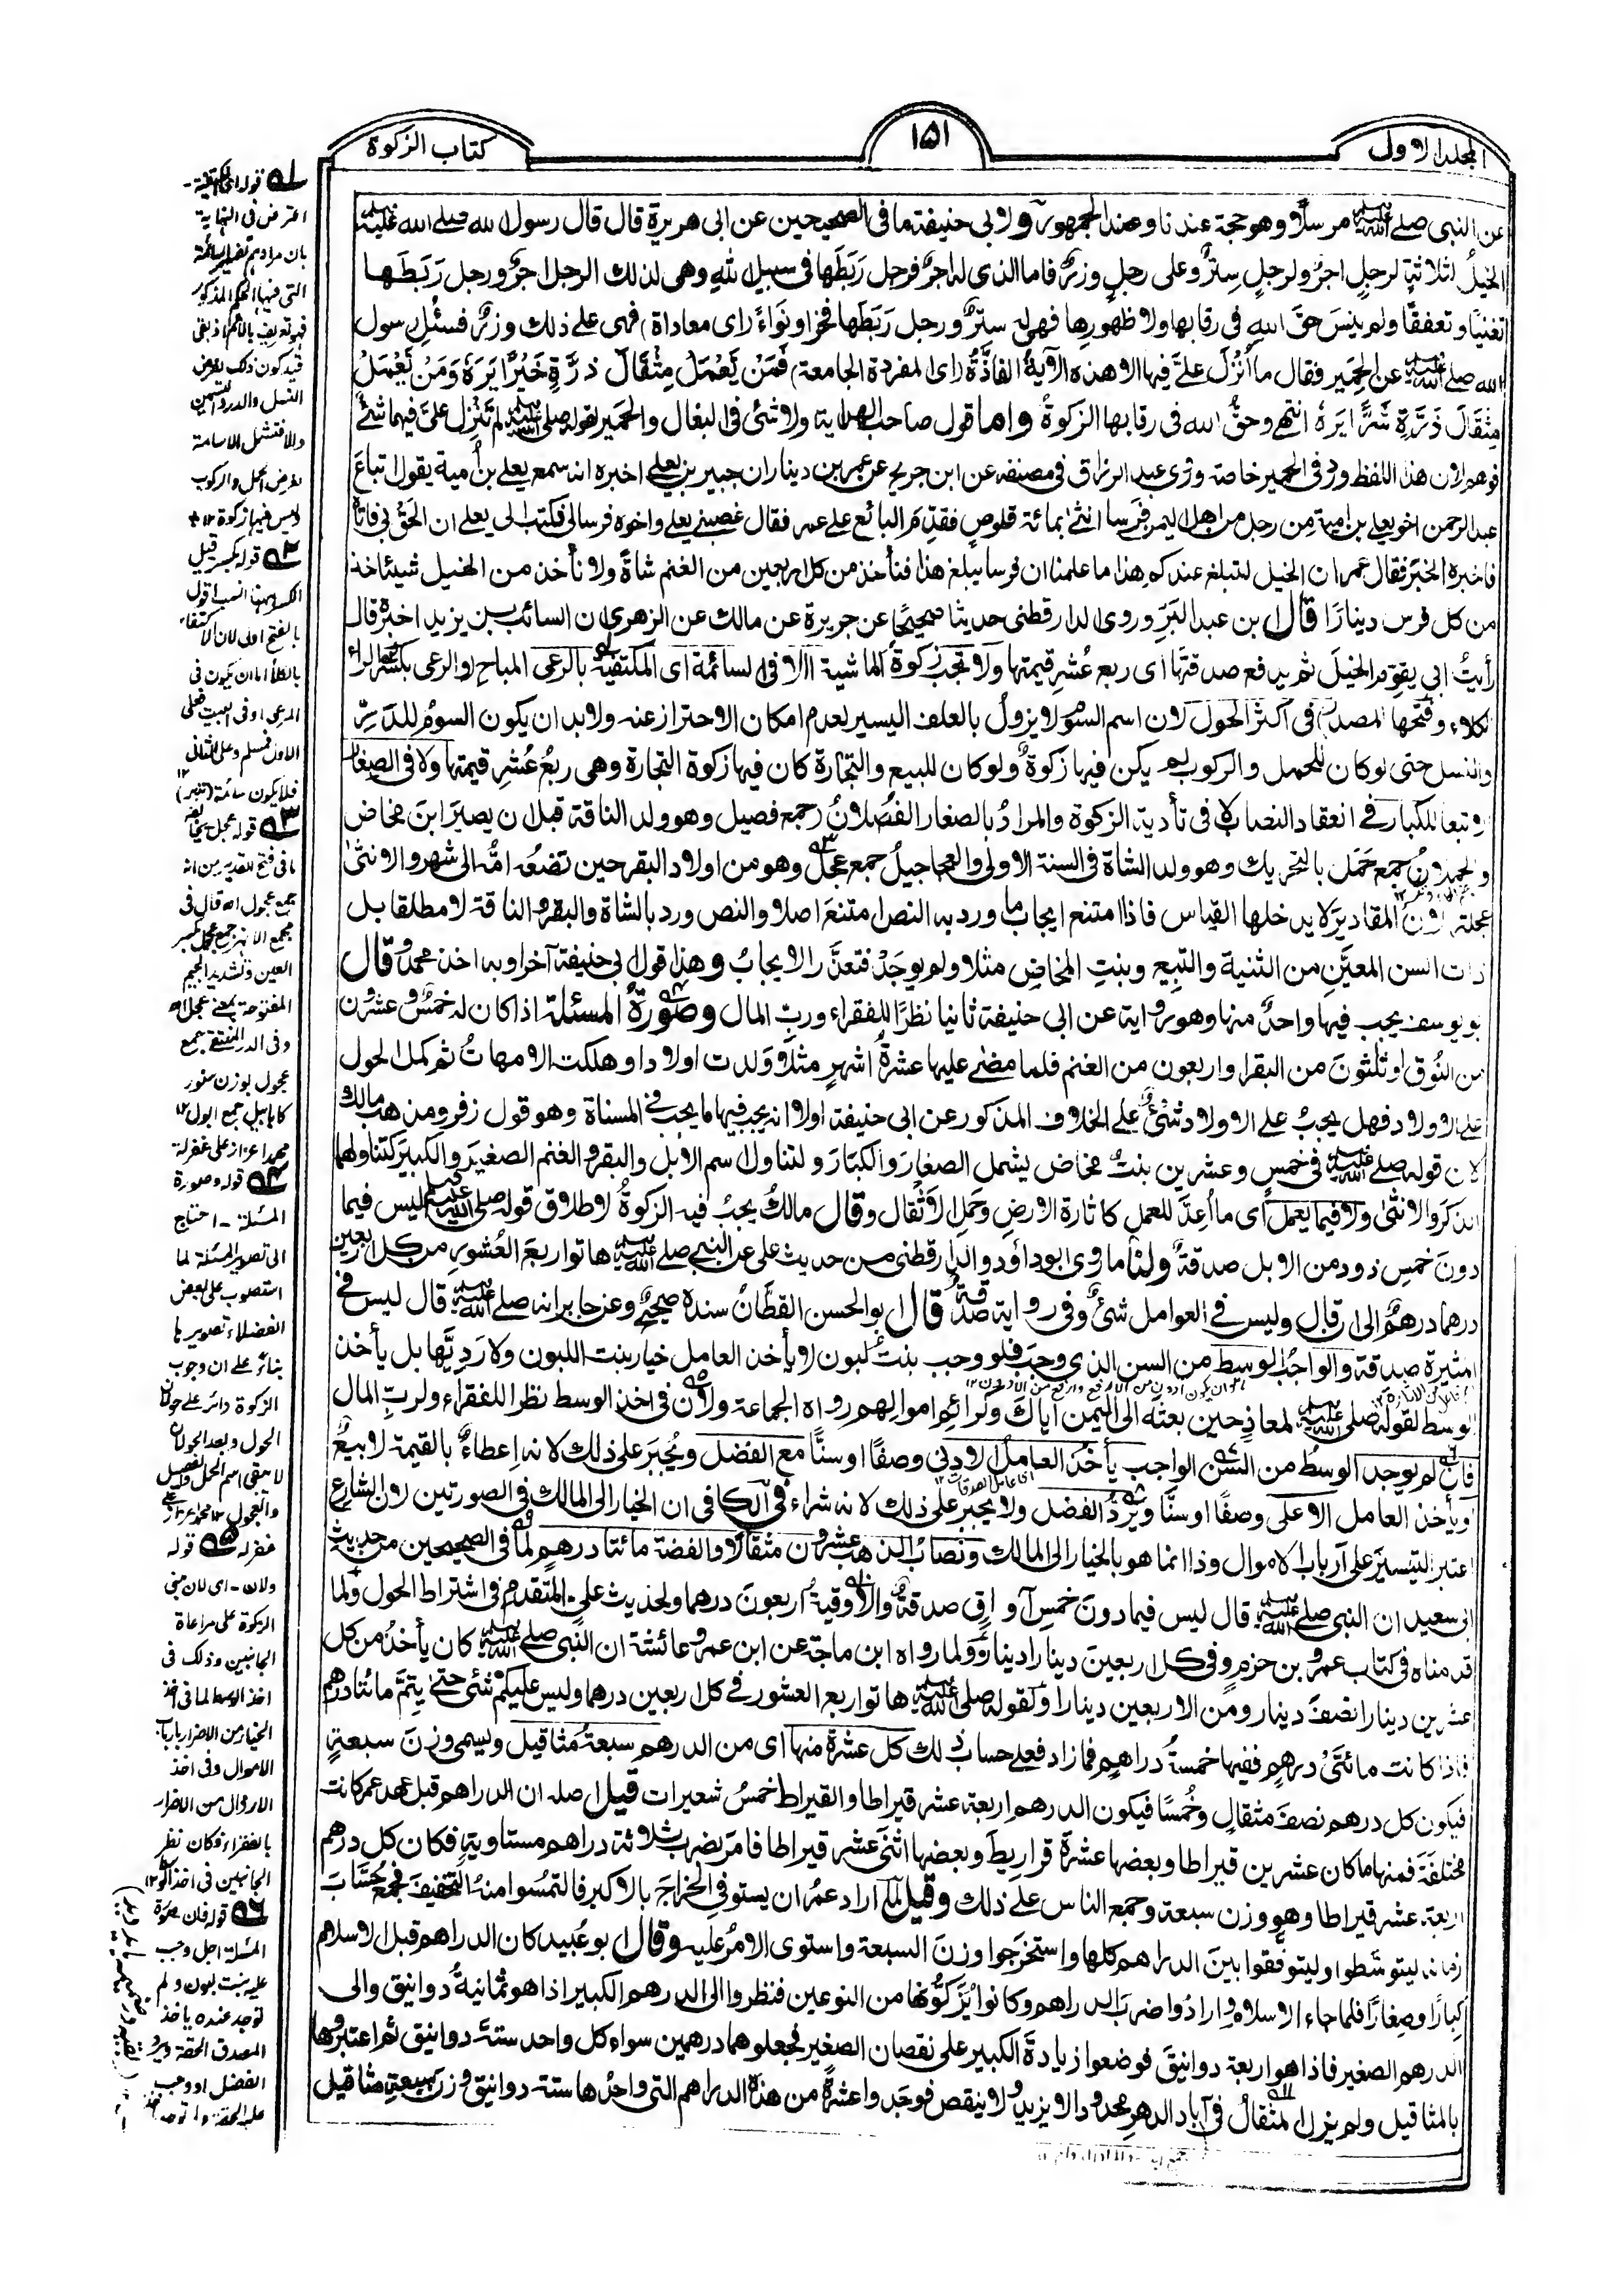 المجلد الاول
١٥١
كتاب الزكوة
عن النبي صلى الله عليه وسلم مرسلًا وهو حجة عندنا وعند الجمهور ولابي حنيفة ما في الصحيحين عن ابي هريرة قال قال رسول الله صلے الله عليه وسلم
الخيلُ لثلاثةٍ لرجلٍ اجرٌ ولرجلٍ سِترٌ وعلى رجلٍ وزرٌ فاما الذى له اجرٌ فرجل رَبَطَها فى سبيل للهِ وهى لذلك الرجل اجرٌ ورجل رَبَطَها
تغنيًا وتعففًا ولم ينسَ حقَّ اللهِ فى رقابها ولا ظهورِها فهى له سترٌ ورجل رَبَطَها فخرا ونَواءً (اى معاداة) فهى على ذلك وزرٌ فسئل رسول
الله صلى الله عليه وسلم عن الحَمير فقال ما أُنزل علىَّ فيها الا هذه الآيةُ الفاذَّةُ (اى المفردة الجامعة) فَمَنْ يَّعْمَلْ مِثْقَالَ ذَرَّةٍ خَيْرًا يَرَهٗ وَمَنْ يَّعْمَلْ
مِثْقَالَ ذَرَّةٍ شَرًّا يَرَهٗ انتهى وحقُّ الله فى رقابها الزكوةُ واما قول صاحب الهداية ولا شئ فى البغال والحَمير لقوله صلى الله عليه وسلم لم يُنْزل علىَّ فيهما شئٌ
فوهم لان هذا اللفظ ورد فى الحمير خاصة وروى عبد الرزاق فى مصنفه عن ابن جريج عن عمرو بن دينار ان جبير بن يعلے اخبره انه سمع يعلے بن أمية يقول ابتاعَ
عبد الرحمن اخو يعلے بن امية مِن رجل من اهل اليمن فَرَسا انثى بمائة قلوصٍ فقدِم البائع على عمر فقال غصبنى يعلے واخوه فرسا لى فكتب الى يعلے ان الحَقْ بى فاتاه
فاخبره الخبرَ فقال عمر ان الخيل لتبلغ عندكم هذا ما علمنا ان فرسا يبلغ هذا فنأخذ من كل اربعين من الغنم شاةً ولا نأخذ من الخيل شيئا خذ
من كل فرس دينارًا قال ابن عبد البَرِّ وروى الدارقطنى حديثا صحيحًا عن جويرة عن مالك عن الزهرى ان السائب بن يزيد اخبره قال
رأيتُ ابى يقوِّم الخيلَ ثم يدفع صدقتَها اى ربع عُشرِ قيمتِها ولا تجب زكوةُ الماشية الا فى السائمة اى المكتفية بالرعى المباح (والرعى بكسر الراء
الكلاء وفتحها المصدر) فى اكثر الحول لان اسم السوم لا يزولُ بالعلف اليسير لعدم امكان الاحتراز عنه ولا بد ان يكون السومُ للدَّرِ
والنسل حتى لو كان للحمل والركوب لم يكن فيها زكوةٌ ولو كان للبيع والتجارة كان فيها زكوة التجارة وهى ربعُ عُشرِ قيمتها ولا فى الصغار
الا تبعا للكبار فے انعقاد النصاب لا فى تأدية الزكوة والمرادُ بالصغار الفُصْلانُ جمع فصيل وهو ولد الناقة قبل ان يصيرَ ابنَ مخاض
والحُمْلانُ جمع حَمَل بالتحريك وهو ولد الشاة فى السنة الاولى والعجاجيلُ جمع عجل وهو من اولاد البقر حين تضعُه امُّه الى شهر والانثىٰ
عجلة لان المقاديرَ لا يدخلها القياس فاذا امتنع ايجاب ما ورد به النص امتنعَ اصلا والنص ورد بالشاة والبقر والناقة لا مطلقا بل
ذات السن المعيَّنِ من الثنية والتبِيع وبنتِ المخاضِ مثلا ولم يوجَدْ فتعذَّر الايجابُ وهذا قول ابى حنيفة آخرا وبه اخذ محمد وقال
ابو يوسف يجب فيها واحدٌ منها وهو رواية عن ابى حنيفة ثانيا نظرًا للفقراء وربِّ المال وصورةُ المسئلة اذا كان له خمسٌ وعشرون
من النُوق او ثلثونَ من البقر او اربعون من الغنم فلما مضٰى عليها عشرةُ اشهرٍ مثلًا ولدت اولادا وهلكت الامهاتُ ثم كمل الحول
على الاولاد فهل يجبُ على الاولاد شئٌ على الخلاف المذكور عن ابى حنيفة اولا انه يجب فيها ما يجب فے المسناة وهو قول زفر ومذهب مالك
لان قوله صلے الله عليه وسلم فى خمسٍ وعشرين بنتُ مخاض يشمل الصغارَ والكبارَ ولتناول اسم الابل والبقر والغنم الصغيرَ والكبيرَ كتناولها
الذكر والانثىٰ ولا فيما يعمل اى ما أُعِدَّ للعمل كاثارة الارضِ وحَملِ الاثقال وقال مالكٌ يجبُ فيه الزكوةُ لاطلاق قوله صلى الله عليه وسلم ليس فيما
دونَ خمسِ ذود من الابل صدقةٌ ولنا ما روى ابو داؤد والدارقطنى من حديث على عن النبى صلے الله عليه وسلم هاتوا ربعَ العُشورِ من كل اربعين
درهما درهمٌ الى ان قال وليس فى العوامل شئٌ وفى رواية صدقةٌ قال ابو الحسن القطّانُ سنده صحيحٌ وعن جابر انه صلے الله عليه وسلم قال ليس فى
المثيرة صدقة والواجبُ الوسط من السن الذى وجب فلو وجب بنتُ لبون لا يأخذ العامل خيار بنت اللبون ولا رَدِيَّها بل يأخذ
الوسط لقوله صلى الله عليه وسلم لمعاذٍ حين بعثه الى اليمن اياك وكرائِم اموالهم رواه الجماعة ولان فى اخذ الوسط نظرا للفقراء ولربِّ المال
فان لم يوجد الوسطُ من السن الواجب يأخذ العاملُ الادنى وصفًا او سنًّا مع الفضل ويُجبَر على ذلك لانه اِعطاءٌ بالقيمة لا بيعٌ
او يأخذ العامل الاعلى وصفًا او سنًّا ويَرُدُّ الفضل ولا يجبر على ذلك لانه شراء فى الكافى ان الخيار الى المالك فى الصورتين لان الشارع
اعتبر التيسيرَ على ارباب الاموال وذا انما هو بالخيار الى المالك ونصابُ الذهب عشرون مثقالًا والفضة مائتا درهم لِما فى الصحيحين من حديث
ابى سعيد ان النبى صلے الله عليه وسلم قال ليس فيما دونَ خمسِ اَواقٍ صدقةٌ والاُوقيةُ اربعونَ درهما ولحديث علىٍ المتقدم فى اشتراط الحول ولما
قدمناه فى كتاب عمرو بن حزم وفى كل اربعينَ دينارا دينارٌ ولما رواه ابن ماجة عن ابن عمر وعائشة ان النبى صلے الله عليه وسلم كان يأخذُ من كل
عشرين دينارا نصفَ دينار ومن الاربعين دينارا ولقوله صلى الله عليه وسلم هاتوا ربع العشور فے كل اربعين درهما وليس عليكم شئى حتى يتِمَّ مائتا درهم
فاذا كانت مائتَىْ درهمٍ ففيها خمسةُ دراهم فما زاد فعلے حساب ذلك كل عشرة منها اى من الدرهم سبعةُ مثاقيل ويسمى وزنَ سبعةٍ
فيكون كل درهم نصفَ مثقال وخُمسًا فيكون الدرهم اربعة عشر قيراطا والقيراط خمسُ شعيرات قيل اصله ان الدراهم قبل عهد عمر كانت
مختلفةً فمنها ما كان عشرين قيراطا وبعضها عشرةَ قراريط وبعضها اثنى عشر قيراطا فامر بضرب ثلاثة دراهم مستاوية فكان كل درهم
اربعة عشر قيراطا وهو وزن سبعة وجمع الناس على ذلك وقيل لما اراد عمرُ ان يستوفى الخراجَ بالاكبر فالتمسُوا منه التخفيفَ فجمع حُسّابَ
زمانه ليتوسَّطوا وليتوفّقوا بينَ الدراهم كلها واستخرجوا وزنَ السبعة واستوى الامرُ عليه وقال ابو عُبيد كان الدراهم قبل الاسلام
كبارًا وصغارًا فلما جاء الاسلام وارادُوا ضربَ الدراهم وكانوا يُزَكُّونها من النوعين فنظروا الى الدرهم الكبير اذا هو ثمانيةُ دوانيق والى
الدرهم الصغير فاذا هو اربعة دوانيقَ فوضعوا زيادةَ الكبير على نقصان الصغير فجعلوهما درهمين سواء كل واحد ستةُ دوانيق ثم اعتبروها
بالمثاقيل ولم يزل المثقالُ فى آباد الدهرِ محدودا لا يزيدُ ولا ينقص فوجدوا عشرةً من هذه الدراهم التى واحدُها ستة دوانيق وزن سبعة مثاقيل
٥١ قوله اى المكتفية -
اعترض فى النهاية
بان مرادهم تفسير السائمة
التى فيها الحكم المذكور
فهو تعريف بالاعم اذ بقى
قيد كون ذلك لغرض
النسل والدر والتسمين
والا فتشمل الاسامة
لغرض الحمل والركوب
وليس فيها زكوة ١٢
٥٢ قوله بكسر قيل
الكسر ههنا انسب اقول
بالفتح اولى لان الاكتفاء
بالكلأ اما ان يكون فى
المرعى او فى البيت فعلى
الاول فمسلم وعلى الثانى
فلا يكون سائمة (تدبر) ١٢
٥٣ قوله عجل يخالفه
ما فى فتح القدير من انه
جمع عجول اه قال فى
مجمع الانهر جمع عجّل بكسر
العين وتشديد الجيم
المفتوحة بمعنى عجل اه
وفى الدر المنتقى جمع
عجول بوزن سنور
كابابيل جمع ابول ١٢
محمد اعزاز على غفرله
٥٤ قوله وصورة
المسئلة - احتاج
الى تصوير المسئلة لما
استصوب على بعض
الفضلاء تصويرها
بناءً على ان وجوب
الزكوة دائر على حولان
الحول وبعد الحولان
لا يبقى اسم الحمل والفصيل
والعجول ١٢ محمد اعزاز على
غفرله ٥٥ قوله
ولان - اى لان مبنى
الزكوة على مراعاة
الجانبين وذلك فى
اخذ الوسط لما فى اخذ
الخيار من الاضرار بارباب
الاموال وفى اخذ
الارذال من الاضرار
بالفقراء فكان نظر
الجانبين فى اخذ الوسط ١٢
٥٦ قوله فان صورة
المسئلة رجل وجب
عليه بنت لبون ولم
توجد عنده ياخذ
المصدق الحقة ويرد
الفضل او وجب
عليه الحقة ولم توجد